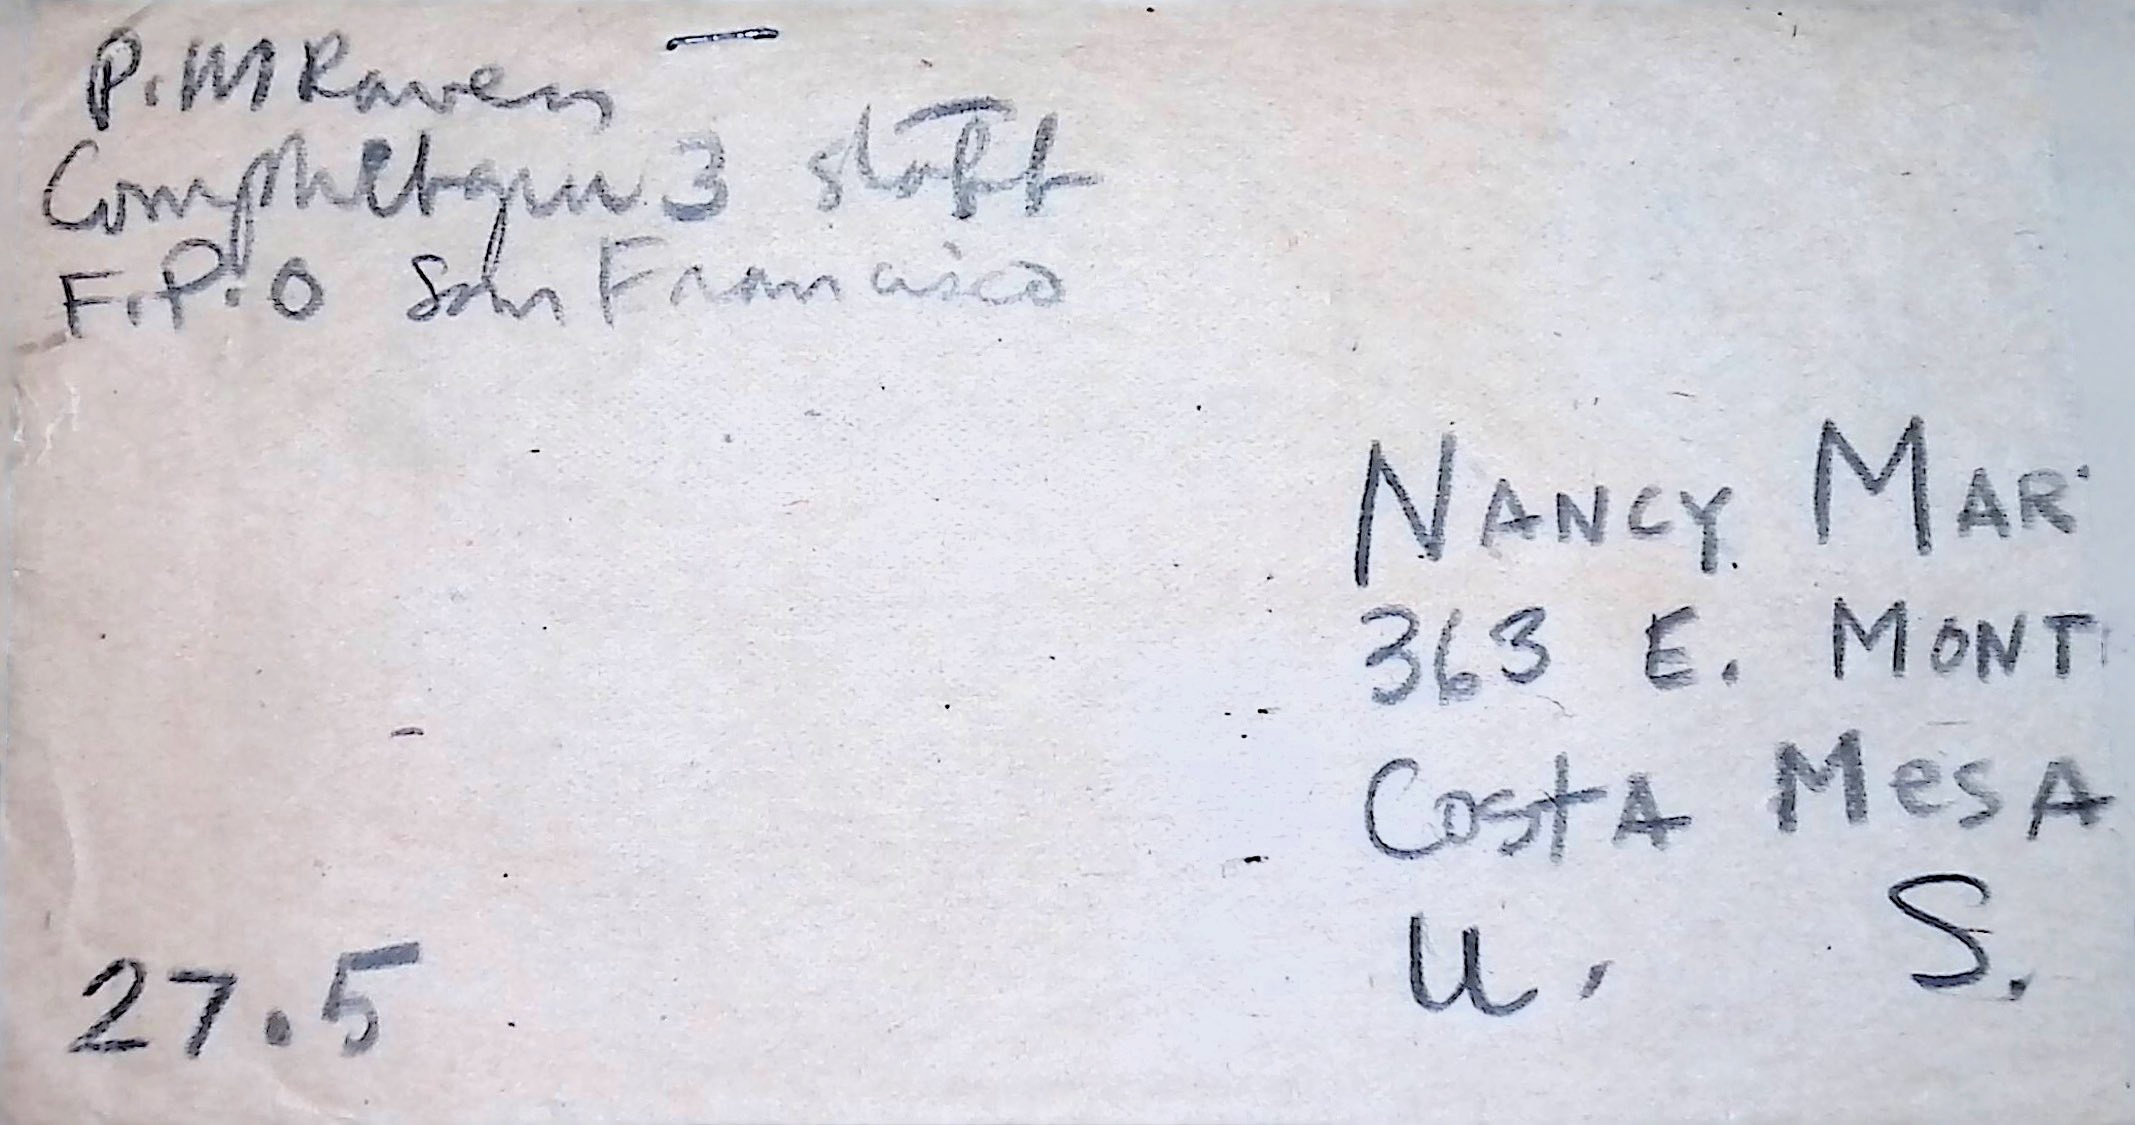 P. M Raven
Comphibgru 3 staff
F.P.O San Francisco
NANCY MAR
363 E. MONT
COSTA MESA
U. S.
27.5